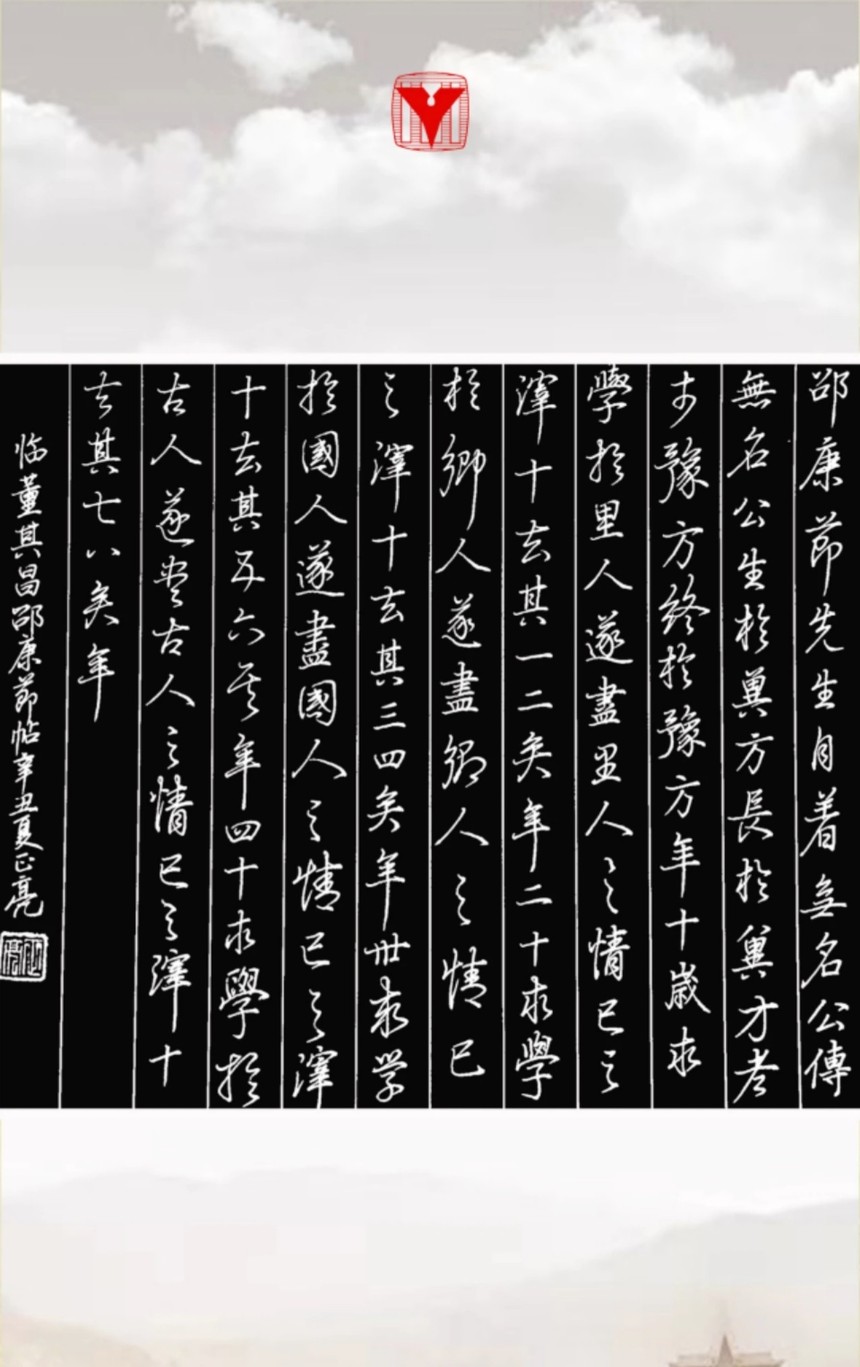 邵康節先生自著無名公傳
無名公生於冀方長於冀方老
於豫方終於豫方年十歲求
學於里人遂盡里人之情己之
滓十去其一二矣年二十求學
於鄉人遂盡鄉人之情己
之滓十去其三四矣年卅求学
於國人遂盡國人之情己之滓
十去其五六矣年四十求學於
古人遂盡古人之情己之滓十
去其七八矣年
临董其昌邵康節帖辛丑夏正亮